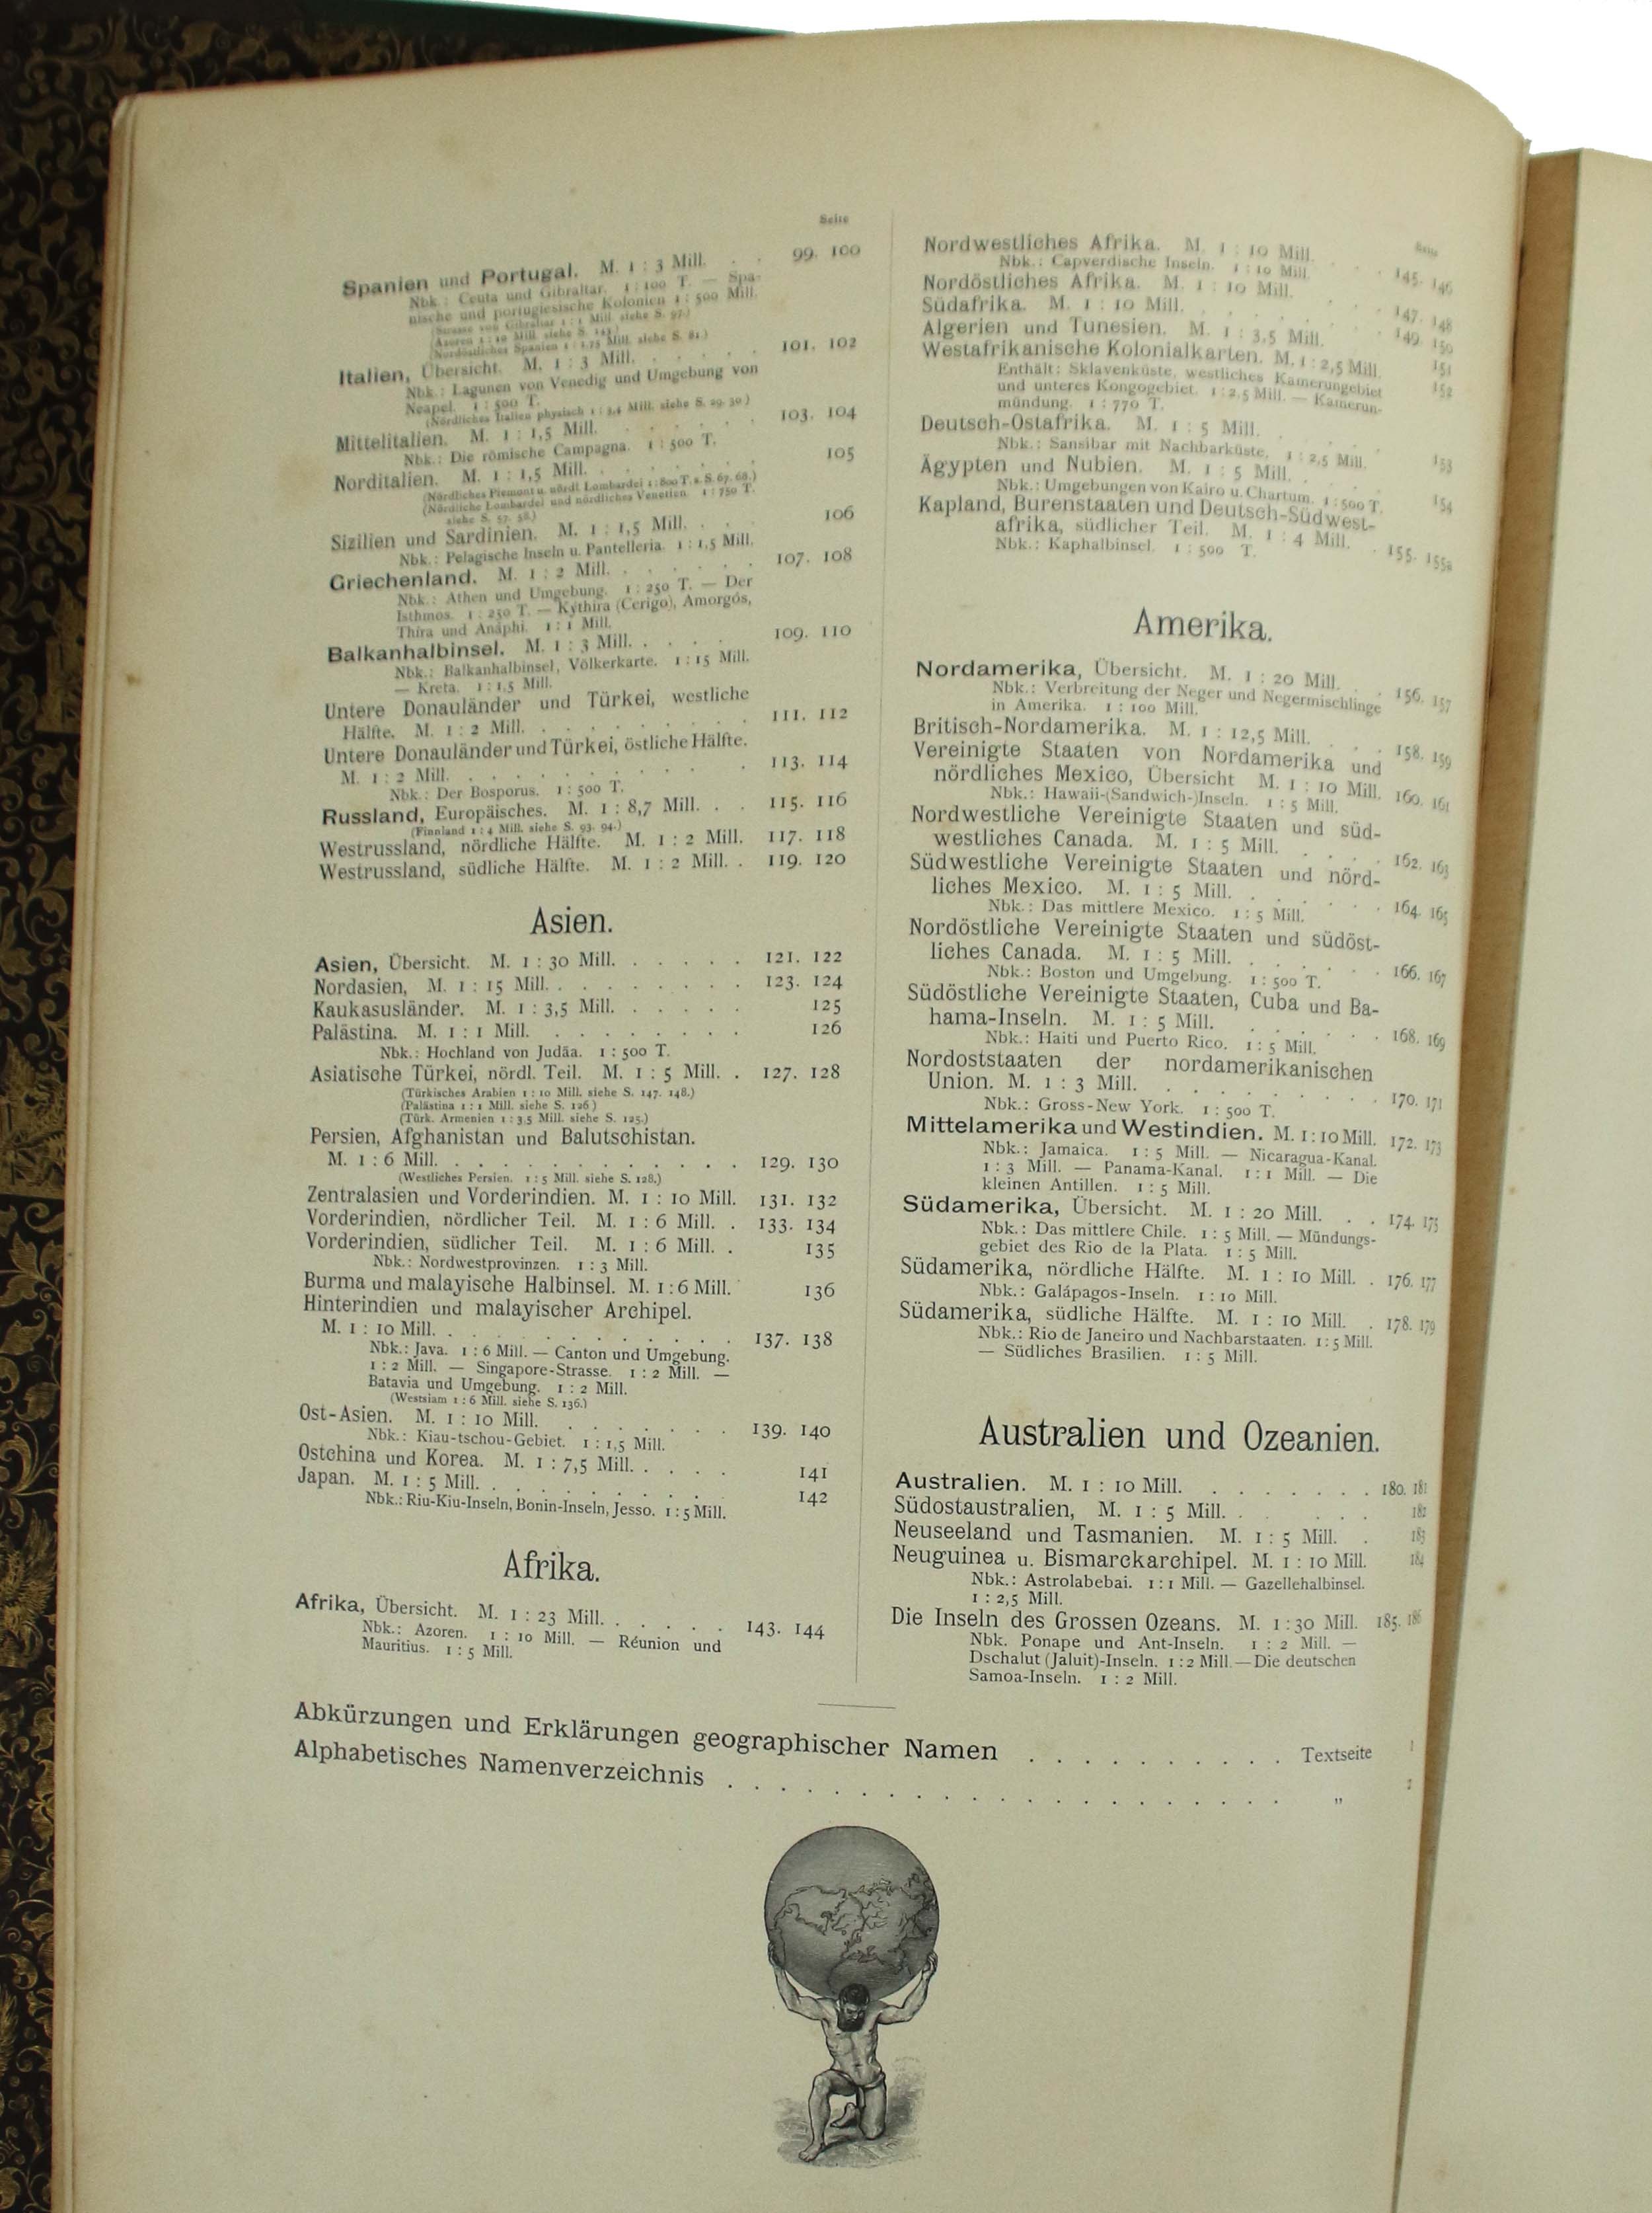 Seite
Spanien und Portugal. M. 1 : 3 Mill. . . 99. 100
Nbk.: Ceuta und Gibraltar. 1 : 100 T. — Spa-
nische und portugiesische Kolonien 1 : 500 Mill.
(Strasse von Gibraltar 1 : 1 Mill. siehe S. 97.)
(Azoren 1 : 10 Mill. siehe S. 143.)
(Nordöstliches Spanien 1 : 1,75 Mill. siehe S. 81.)
Italien, Übersicht. M. 1 : 3 Mill. . . . . . 101. 102
Nbk.: Lagunen von Venedig und Umgebung von
Neapel. 1 : 500 T.
(Nördliches Italien physisch 1 : 3,4 Mill. siehe S. 29. 30.)
Mittelitalien. M. 1 : 1,5 Mill. . . . . . 103. 104
Nbk.: Die römische Campagna. 1 : 500 T.
Norditalien. M. 1 : 1,5 Mill. . . . . . . 105
(Nördliches Piemont u. nördl. Lombardei 1 : 800 T. s. S. 67. 68.)
(Nördliche Lombardei und nördliches Venetien. 1 : 750 T.
siehe S. 57. 58.)
Sizilien und Sardinien. M. 1 : 1,5 Mill. . . 106
Nbk.: Pelagische Inseln u. Pantelleria. 1 : 1,5 Mill.
Griechenland. M. 1 : 2 Mill. . . . . . . 107. 108
Nbk.: Athen und Umgebung. 1 : 250 T. — Der
Isthmos. 1 : 250 T. — Kythira (Cerigo), Amorgós,
Thíra und Anáphi. 1 : 1 Mill.
Balkanhalbinsel. M. 1 : 3 Mill. . . . . 109. 110
Nbk.: Balkanhalbinsel, Völkerkarte. 1 : 15 Mill.
— Kreta. 1 : 1,5 Mill.
Untere Donauländer und Türkei, westliche
Hälfte. M. 1 : 2 Mill. . . . . . . . . 111. 112
Untere Donauländer und Türkei, östliche Hälfte.
M. 1 : 2 Mill. . . . . . . . . . . 113. 114
Nbk.: Der Bosporus. 1 : 500 T.
Russland, Europäisches. M. 1 : 8,7 Mill. . . 115. 116
(Finnland 1 : 4 Mill. siehe S. 93. 94.)
Westrussland, nördliche Hälfte. M. 1 : 2 Mill. 117. 118
Westrussland, südliche Hälfte. M. 1 : 2 Mill. . 119. 120
Asien.
Asien, Übersicht. M. 1 : 30 Mill. . . . . . 121. 122
Nordasien, M. 1 : 15 Mill. . . . . . . . . 123. 124
Kaukasusländer. M. 1 : 3,5 Mill. . . . . . 125
Palästina. M. 1 : 1 Mill. . . . . . . . . 126
Nbk.: Hochland von Judäa. 1 : 500 T.
Asiatische Türkei, nördl. Teil. M. 1 : 5 Mill. . 127. 128
(Türkisches Arabien 1 : 10 Mill. siehe S. 147. 148.)
(Palästina 1 : 1 Mill. siehe S. 126)
(Türk. Armenien 1 : 3,5 Mill. siehe S. 125.)
Persien, Afghanistan und Balutschistan.
M. 1 : 6 Mill. . . . . . . . . . . . 129. 130
(Westliches Persien. 1 : 5 Mill. siehe S. 128.)
Zentralasien und Vorderindien. M. 1 : 10 Mill. 131. 132
Vorderindien, nördlicher Teil. M. 1 : 6 Mill. . 133. 134
Vorderindien, südlicher Teil. M. 1 : 6 Mill. . 135
Nbk.: Nordwestprovinzen. 1 : 3 Mill.
Burma und malayische Halbinsel. M. 1 : 6 Mill. 136
Hinterindien und malayischer Archipel.
M. 1 : 10 Mill. . . . . . . . . . . . 137. 138
Nbk.: Java. 1 : 6 Mill. — Canton und Umgebung.
1 : 2 Mill. — Singapore-Strasse. 1 : 2 Mill. —
Batavia und Umgebung. 1 : 2 Mill.
(Westsiam 1 : 6 Mill. siehe S. 136.)
Ost-Asien. M. 1 : 10 Mill. . . . . . . . 139. 140
Nbk.: Kiau-tschou-Gebiet. 1 : 1,5 Mill.
Ostchina und Korea. M. 1 : 7,5 Mill. . . . . 141
Japan. M. 1 : 5 Mill. . . . . . . . . . 142
Nbk.: Riu-Kiu-Inseln, Bonin-Inseln, Jesso. 1 : 5 Mill.
Afrika.
Afrika, Übersicht. M. 1 : 23 Mill. . . . . . 143. 144
Nbk.: Azoren. 1 : 10 Mill. — Réunion und
Mauritius. 1 : 5 Mill.
Seite
Nordwestliches Afrika. M. 1 : 10 Mill. . . . 145. 146
Nbk.: Capverdische Inseln. 1 : 10 Mill.
Nordöstliches Afrika. M. 1 : 10 Mill. . . . 147. 148
Südafrika. M. 1 : 10 Mill. . . . . . . . 149. 150
Algerien und Tunesien. M. 1 : 3,5 Mill. . . 151
Westafrikanische Kolonialkarten. M. 1 : 2,5 Mill. 152
Enthält: Sklavenküste, westliches Kamerungebiet
und unteres Kongogebiet. 1 : 2,5 Mill. — Kamerun-
mündung. 1 : 770 T.
Deutsch-Ostafrika. M. 1 : 5 Mill. . . . . 153
Nbk.: Sansibar mit Nachbarküste. 1 : 2,5 Mill.
Ägypten und Nubien. M. 1 : 5 Mill. . . . 154
Nbk.: Umgebungen von Kairo u. Chartum. 1 : 500 T.
Kapland, Burenstaaten und Deutsch-Südwest-
afrika, südlicher Teil. M. 1 : 4 Mill. . 155. 155a
Nbk.: Kaphalbinsel. 1 : 500 T.
Amerika.
Nordamerika, Übersicht. M. 1 : 20 Mill. . . 156. 157
Nbk.: Verbreitung der Neger und Negermischlinge
in Amerika. 1 : 100 Mill.
Britisch-Nordamerika. M. 1 : 12,5 Mill. . . . 158. 159
Vereinigte Staaten von Nordamerika und
nördliches Mexico, Übersicht M. 1 : 10 Mill. 160. 161
Nbk.: Hawaii-(Sandwich-)Inseln. 1 : 5 Mill.
Nordwestliche Vereinigte Staaten und süd-
westliches Canada. M. 1 : 5 Mill. . . . . 162. 163
Südwestliche Vereinigte Staaten und nörd-
liches Mexico. M. 1 : 5 Mill. . . . . . 164. 165
Nbk.: Das mittlere Mexico. 1 : 5 Mill.
Nordöstliche Vereinigte Staaten und südöst-
liches Canada. M. 1 : 5 Mill. . . . . . 166. 167
Nbk.: Boston und Umgebung. 1 : 500 T.
Südöstliche Vereinigte Staaten, Cuba und Ba-
hama-Inseln. M. 1 : 5 Mill. . . . . . 168. 169
Nbk.: Haiti und Puerto Rico. 1 : 5 Mill.
Nordoststaaten der nordamerikanischen
Union. M. 1 : 3 Mill. . . . . . . . . 170. 171
Nbk.: Gross-New York. 1 : 500 T.
Mittelamerika und Westindien. M. 1 : 10 Mill. 172. 173
Nbk.: Jamaica. 1 : 5 Mill. — Nicaragua-Kanal.
1 : 3 Mill. — Panama-Kanal. 1 : 1 Mill. — Die
kleinen Antillen. 1 : 5 Mill.
Südamerika, Übersicht. M. 1 : 20 Mill. . . 174. 175
Nbk.: Das mittlere Chile. 1 : 5 Mill. — Mündungs-
gebiet des Rio de la Plata. 1 : 5 Mill.
Südamerika, nördliche Hälfte. M. 1 : 10 Mill. . 176. 177
Nbk.: Galápagos-Inseln. 1 : 10 Mill.
Südamerika, südliche Hälfte. M. 1 : 10 Mill. . 178. 179
Nbk.: Rio de Janeiro und Nachbarstaaten. 1 : 5 Mill.
— Südliches Brasilien. 1 : 5 Mill.
Australien und Ozeanien.
Australien. M. 1 : 10 Mill. . . . . . . . 180. 181
Südostaustralien, M. 1 : 5 Mill. . . . . . 182
Neuseeland und Tasmanien. M. 1 : 5 Mill. . 183
Neuguinea u. Bismarckarchipel. M. 1 : 10 Mill. 184
Nbk.: Astrolabebai. 1 : 1 Mill. — Gazellehalbinsel.
1 : 2,5 Mill.
Die Inseln des Grossen Ozeans. M. 1 : 30 Mill. 185. 186
Nbk. Ponape und Ant-Inseln. 1 : 2 Mill. —
Dschalut (Jaluit)-Inseln. 1 : 2 Mill. — Die deutschen
Samoa-Inseln. 1 : 2 Mill.
Abkürzungen und Erklärungen geographischer Namen . . . . . . . . . . Textseite 1
Alphabetisches Namenverzeichnis . . . . . . . . . . . . . . . . . . . . . „ 2